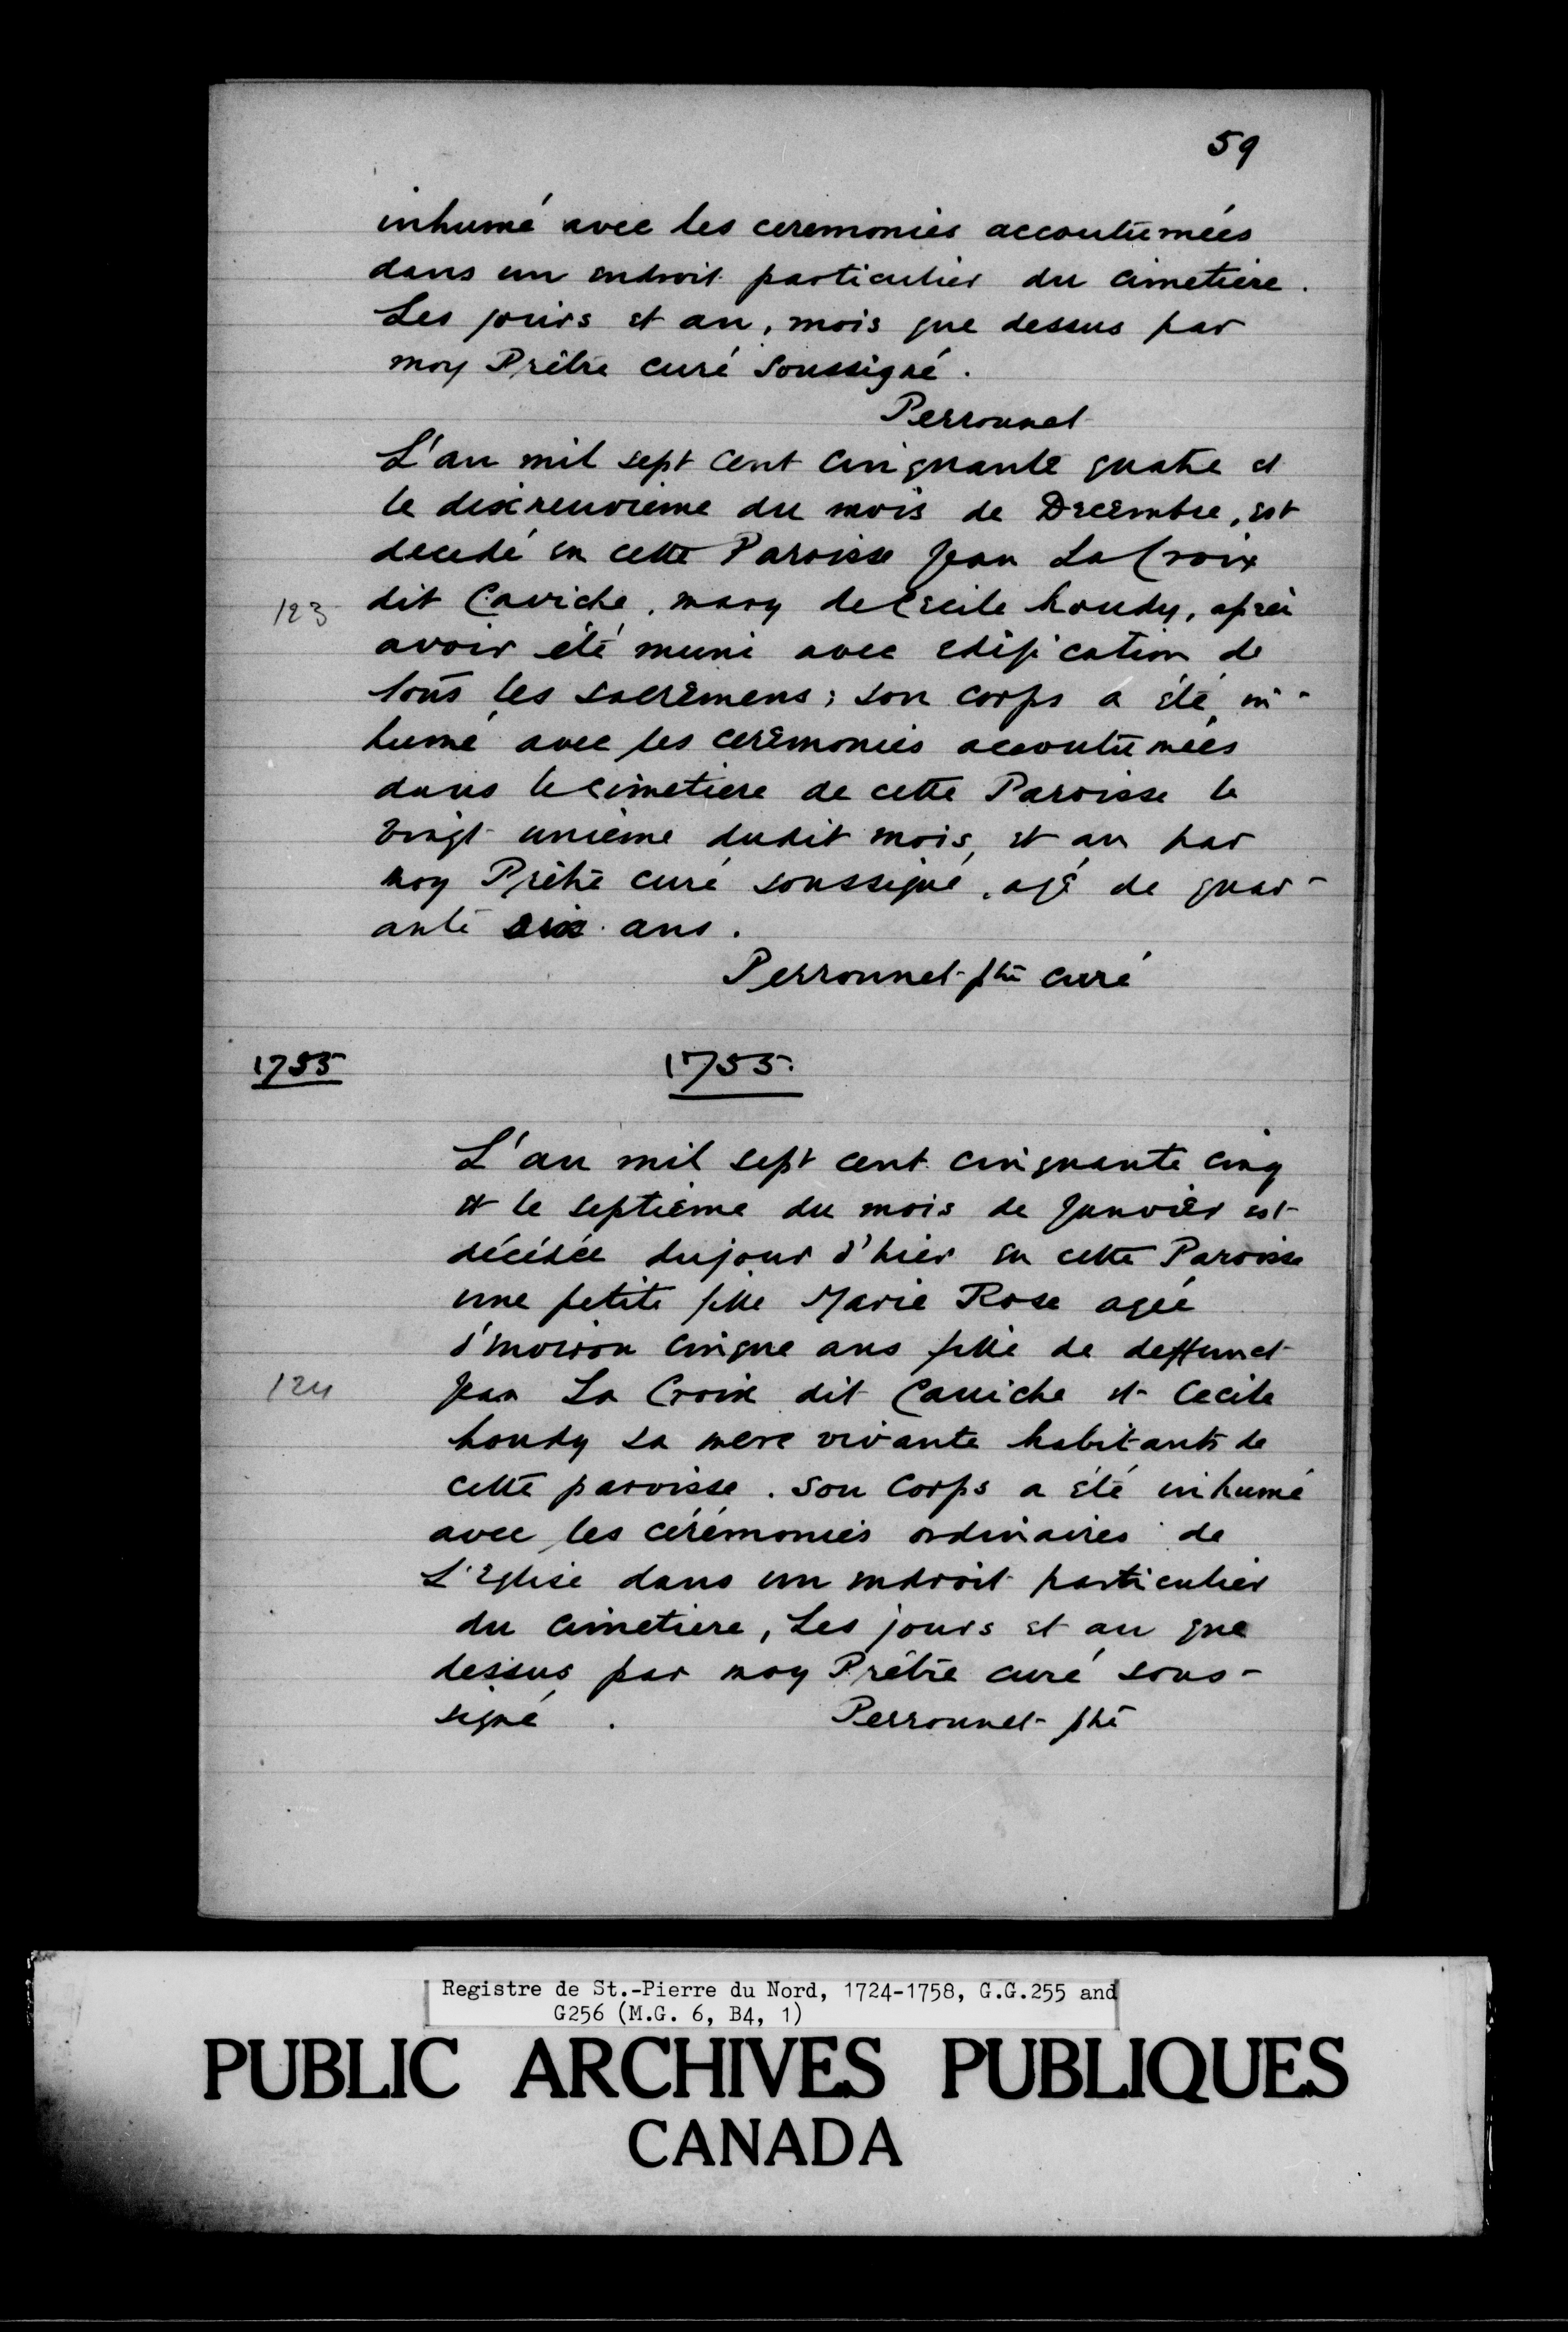 59
inhumé avec les ceremonies accoutumées
dans un endroit particulier du cimetiere.
Les jours et an, mois que dessus par
moy Prêtre curé soussigné.
Perronnet
L'an mil sept cent cinquante quatre et
le dixneuvieme du mois de Decembre, est
decedé en cette Paroisse Jean La Croix
123 dit Caviche, mary de Cecile houdy, après
avoir été muni avec edification de
tous les sacremens; son corps a été in-
humé avec les ceremonies accoutumées
dans le cimetiere de cette Paroisse le
vingt unieme dudit mois, et an par
moy Prêtre curé soussigné, agé de quar-
ante six ans.
Perronnet ptre curé
1755 1755.
L'an mil sept cent cinquante cinq
et le septieme du mois de Janvier est
décédée dujour d'hier en cette Paroisse
une petite fille Marie Rose agée
d'moiron cinque ans fille de deffunct
124 Jean La Croix dit Cauiche et Cecile
houdy sa mere vivante habitants de
cette paroisse. Son Corps a été inhumé
avec les cérémonies ordinaires de
L'Eglise dans un endroit particulier
du cimetiere, Les jours et an que
dessus par moy Prêtre curé sous-
signé. Perronnet ptre
Registre de St.-Pierre du Nord, 1724-1758, G.G.255 and
G256 (M.G. 6, B4, 1)
PUBLIC ARCHIVES PUBLIQUES
CANADA